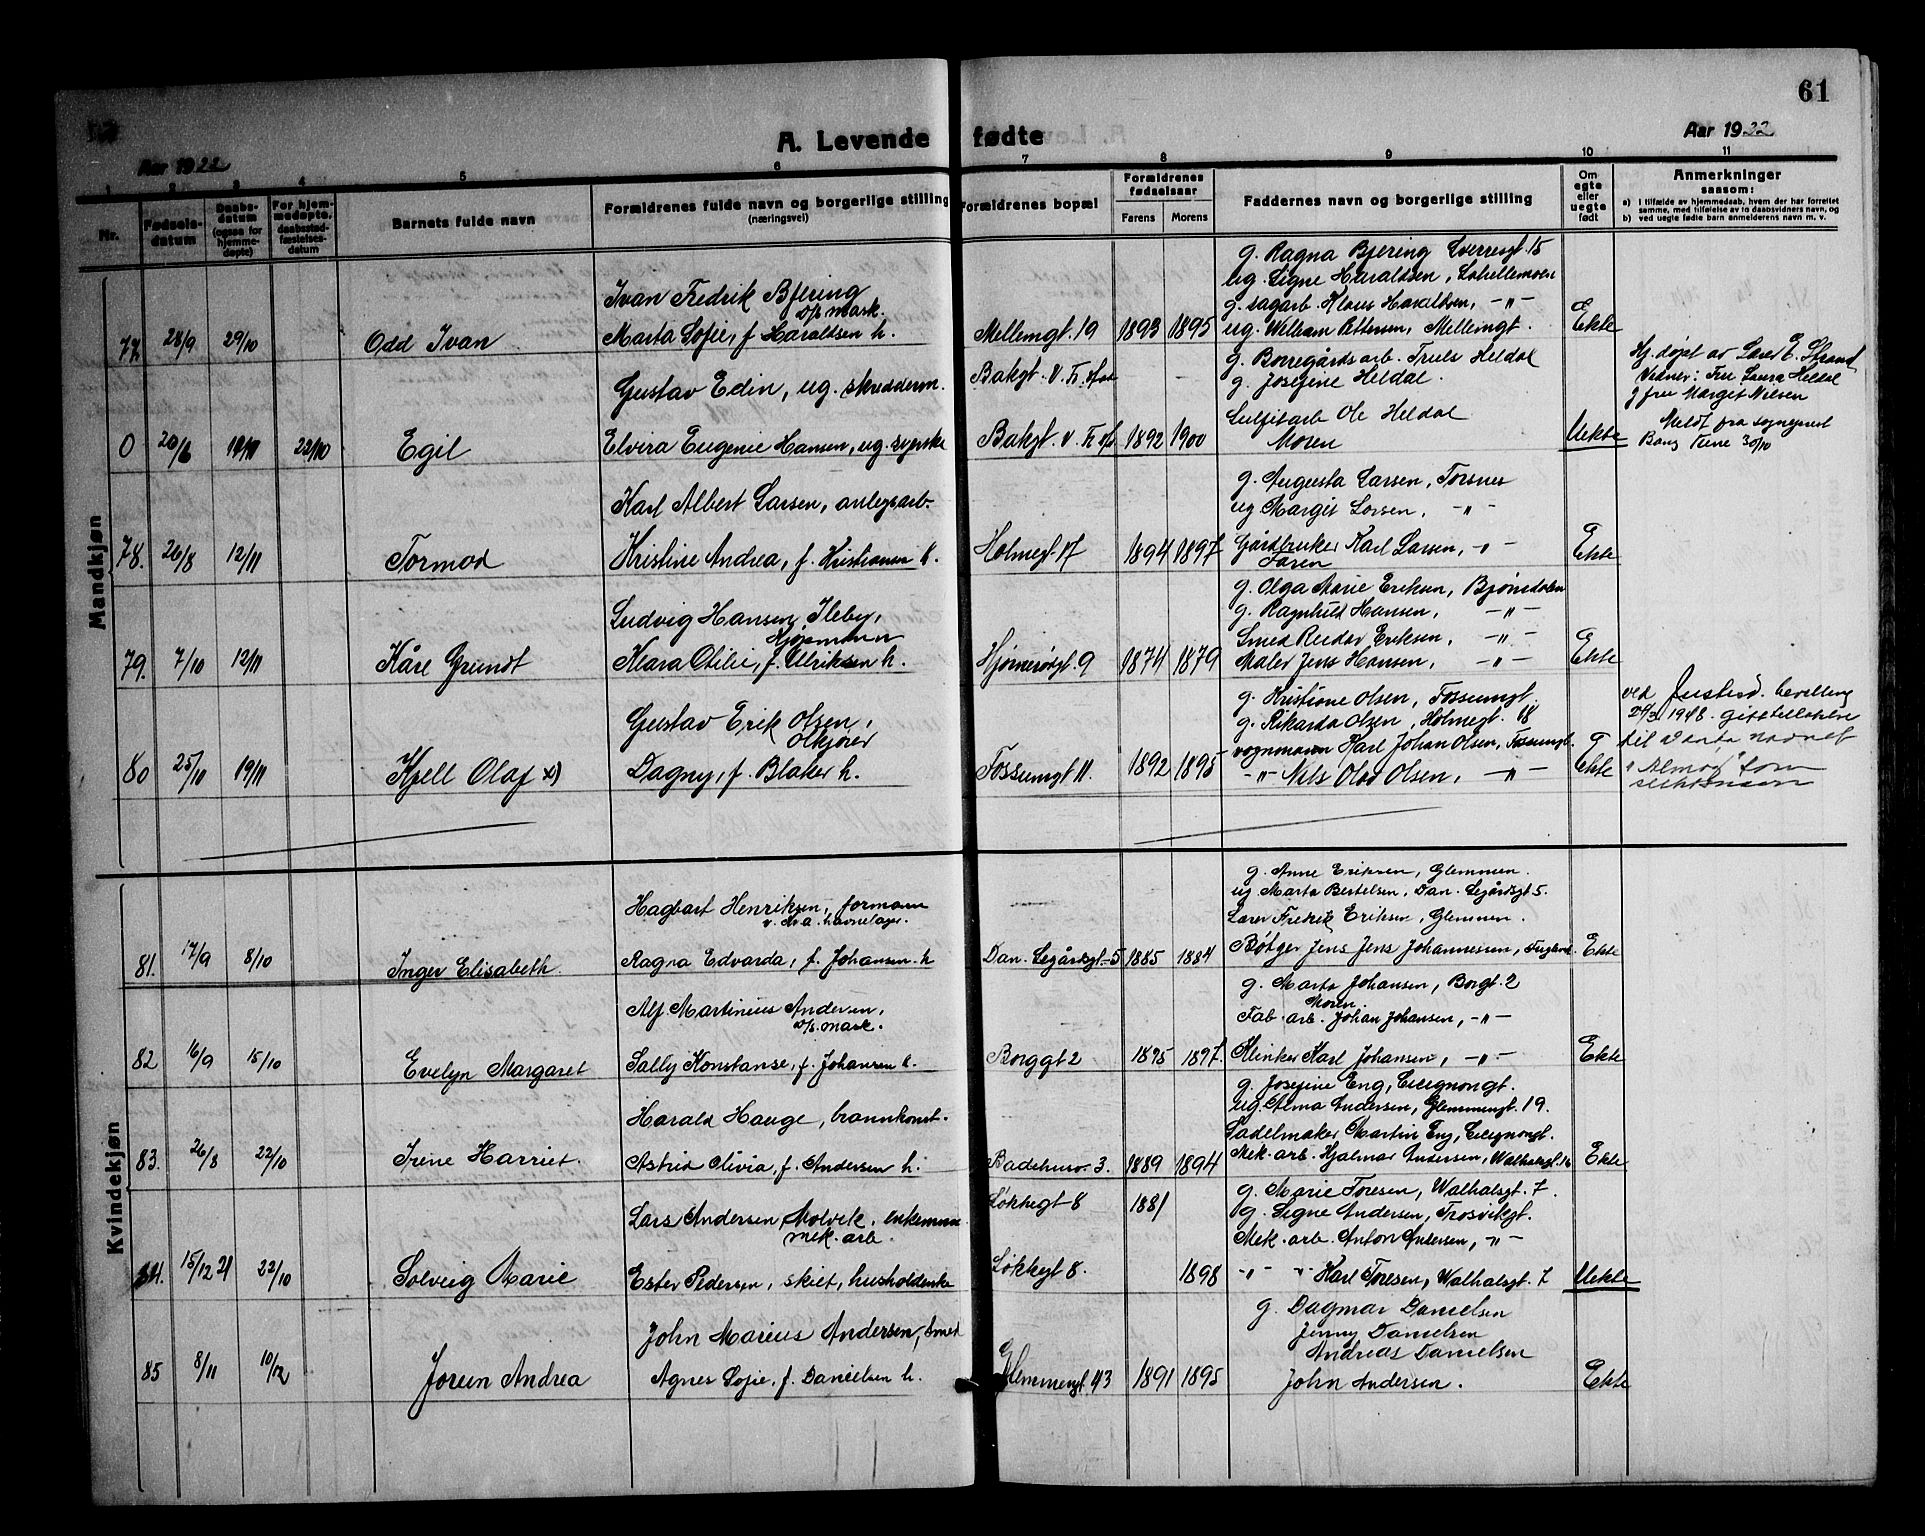 61
A. Levende fødte
Aar 1922
Aar 1922
1 2 3 4 5 6 7 8 9 10 11
Nr.
Fødsels-datum
Daabs-datum (ogsaa for hjemme-døpte)
For hjem-medøpte, daabsstad-fæstelses-datum
Barnets fulde navn
Forældrenes fulde navn og borgerlige stilling (næringsvei)
Forældrenes bopæl
Forældrenes fødselsaar
Farens Morens
Faddernes navn og borgerlige stilling
Om egte eller uegte født
Anmerkninger
saasom:
a) I tilfælde av hjemmedaab, hvem der har forrettet samme, med tilføielse av to daabsvidners navn, og
b) ved uegte fødte barn anmelderens navn m. v.
Mandkjøn
g. Ragna Bjering Sverresgt. 15
Ivan Fredrik Bjering
ug. Signe Haraldsen,
d/s mask.
g. sagarb. Klaus Haraldsen, -"-
77. 28/9 29/10 Odd Ivan Marta Sofie, f. Haraldsen h. Mellemgt. 19 1893 1895 ug. William Pettersen, Mellemgt. Ekte
Gustav Edin, ug. skredderm. Bakgt. V. Fr.stad
g. Borregårdsarb. Truls Heldal
g. Josefine Heldal.
Hj. døpt av Lærer E. Strand
Vidner: Fru Laura Heldal
g fru Marget Nielsen
Sulfitarb Ole Heldal
Meldt fra sogneprest
0 20/6 22/10 Egil Elvira Eugenie Hansen, ug. syerske Bakgt. V. Fr.st. 1892 1900 Moren Uekte
Bang Tune 30/10
g. Augusta Larsen, Torsnes
Karl Albert Larsen, anlegsarb.
ug Margit Larsen, -"-
78. 26/8 12/11 Tormod Kristine Andrea, f. Kristiansen h. Holmegt 17 1894 1897 Gårdbruker Karl Larsen, -"- Ekte
Faren
g. Olga Marie Eriksen, Bjørnedalen
Ludvig Hansen Ileby,
g. Ragnhild Hansen, -"-
Kjøpmann
Smed Reidar Eriksen, -"-
79. 7/10 12/11 Kåre Grundt Klara Otilie, f. Ulriksen h. Hjørnerødgt. 9 1874 1879 Maler Jens Hansen, -"- Ekte
g. Kristiane Olsen, Fossumgt.
Gustav Erik Olsen,
g. Rikarda Olsen, Holmegt. 18
Ølkjører
vognmann Karl Johan Olsen, Fossumgt.
80 25/10 19/11 Kjell Olaf x) Dagny, f. Blaker h. Fossumgt 11. 1892 1895 -"- Nils Olav Olsen, -"- Ekte
ved Justisd. bevilling
24/3 1948. gitt tillatelse
til å anta navnet
"Almod" som
slektsnavn
Kvindekjøn
g. Anne Eriksen, Glemmen.
ug. Marta Bertelsen, Dan. Legårdsgt 5.
Hagbart Henriksen, formann
Lærer Fredrik Eriksen, Glemmen.
81. 17/9 8/10 Inger Elisabeth Ragna Edvarda, f. Johansen h Dan. Legårdsgt. 5 1885 1884 Bøtger Jens Jens Johannessen, Ekte
g. Marta Johansen, Borggt. 2
Alf Martinius Andersen,
Moren.
d/s mask.
Fab. arb. Johan Johansen, -"-
82 16/9 15/10 Evelyn Margaret Sally Konstanse, f. Johansen h. Borggt 2 1895 1897. Klinker Karl Johansen, -"- Ekte
g. Josefine Eng, Cicignongt.
Harald Hauge, brannkonst.
ug. Alma Andersen, Glemmengt. 19.
Sadelmaker Martin Eng, Cicignongt.
83. 26/8 22/10 Irene Harriet. Astrid Olivia, f. Andersen h. Badehusg. 3. 1889 1894 Mek. arb. Hjalmar Andersen, Walhalsgt. 16 Ekte
Løkkegt 8 1881
g. Marie Toresen, Walhalsgt. 7.
Lars Andersen Molvik, enkemann
g. Signe Andersen, Trosvikgt.
mek. arb.
Mek. arb. Anton Andersen, -"-
84. 15/12 21 22/10 Solveig Marie Ester Pedersen, skilt, husholderske Løkkegt 8. 1898 -"- " Karl Toresen, Walhalsgt. 7 Uekte
g. Dagmar Danielsen
John Marius Andersen, smed
Jenny Danielsen
Andreas Danielsen
85 8/11 10/12 Jorun Andrea Agnes Sofie, f. Danielsen h. Glemmengt 43 1891 1895 John Andersen. Ekte